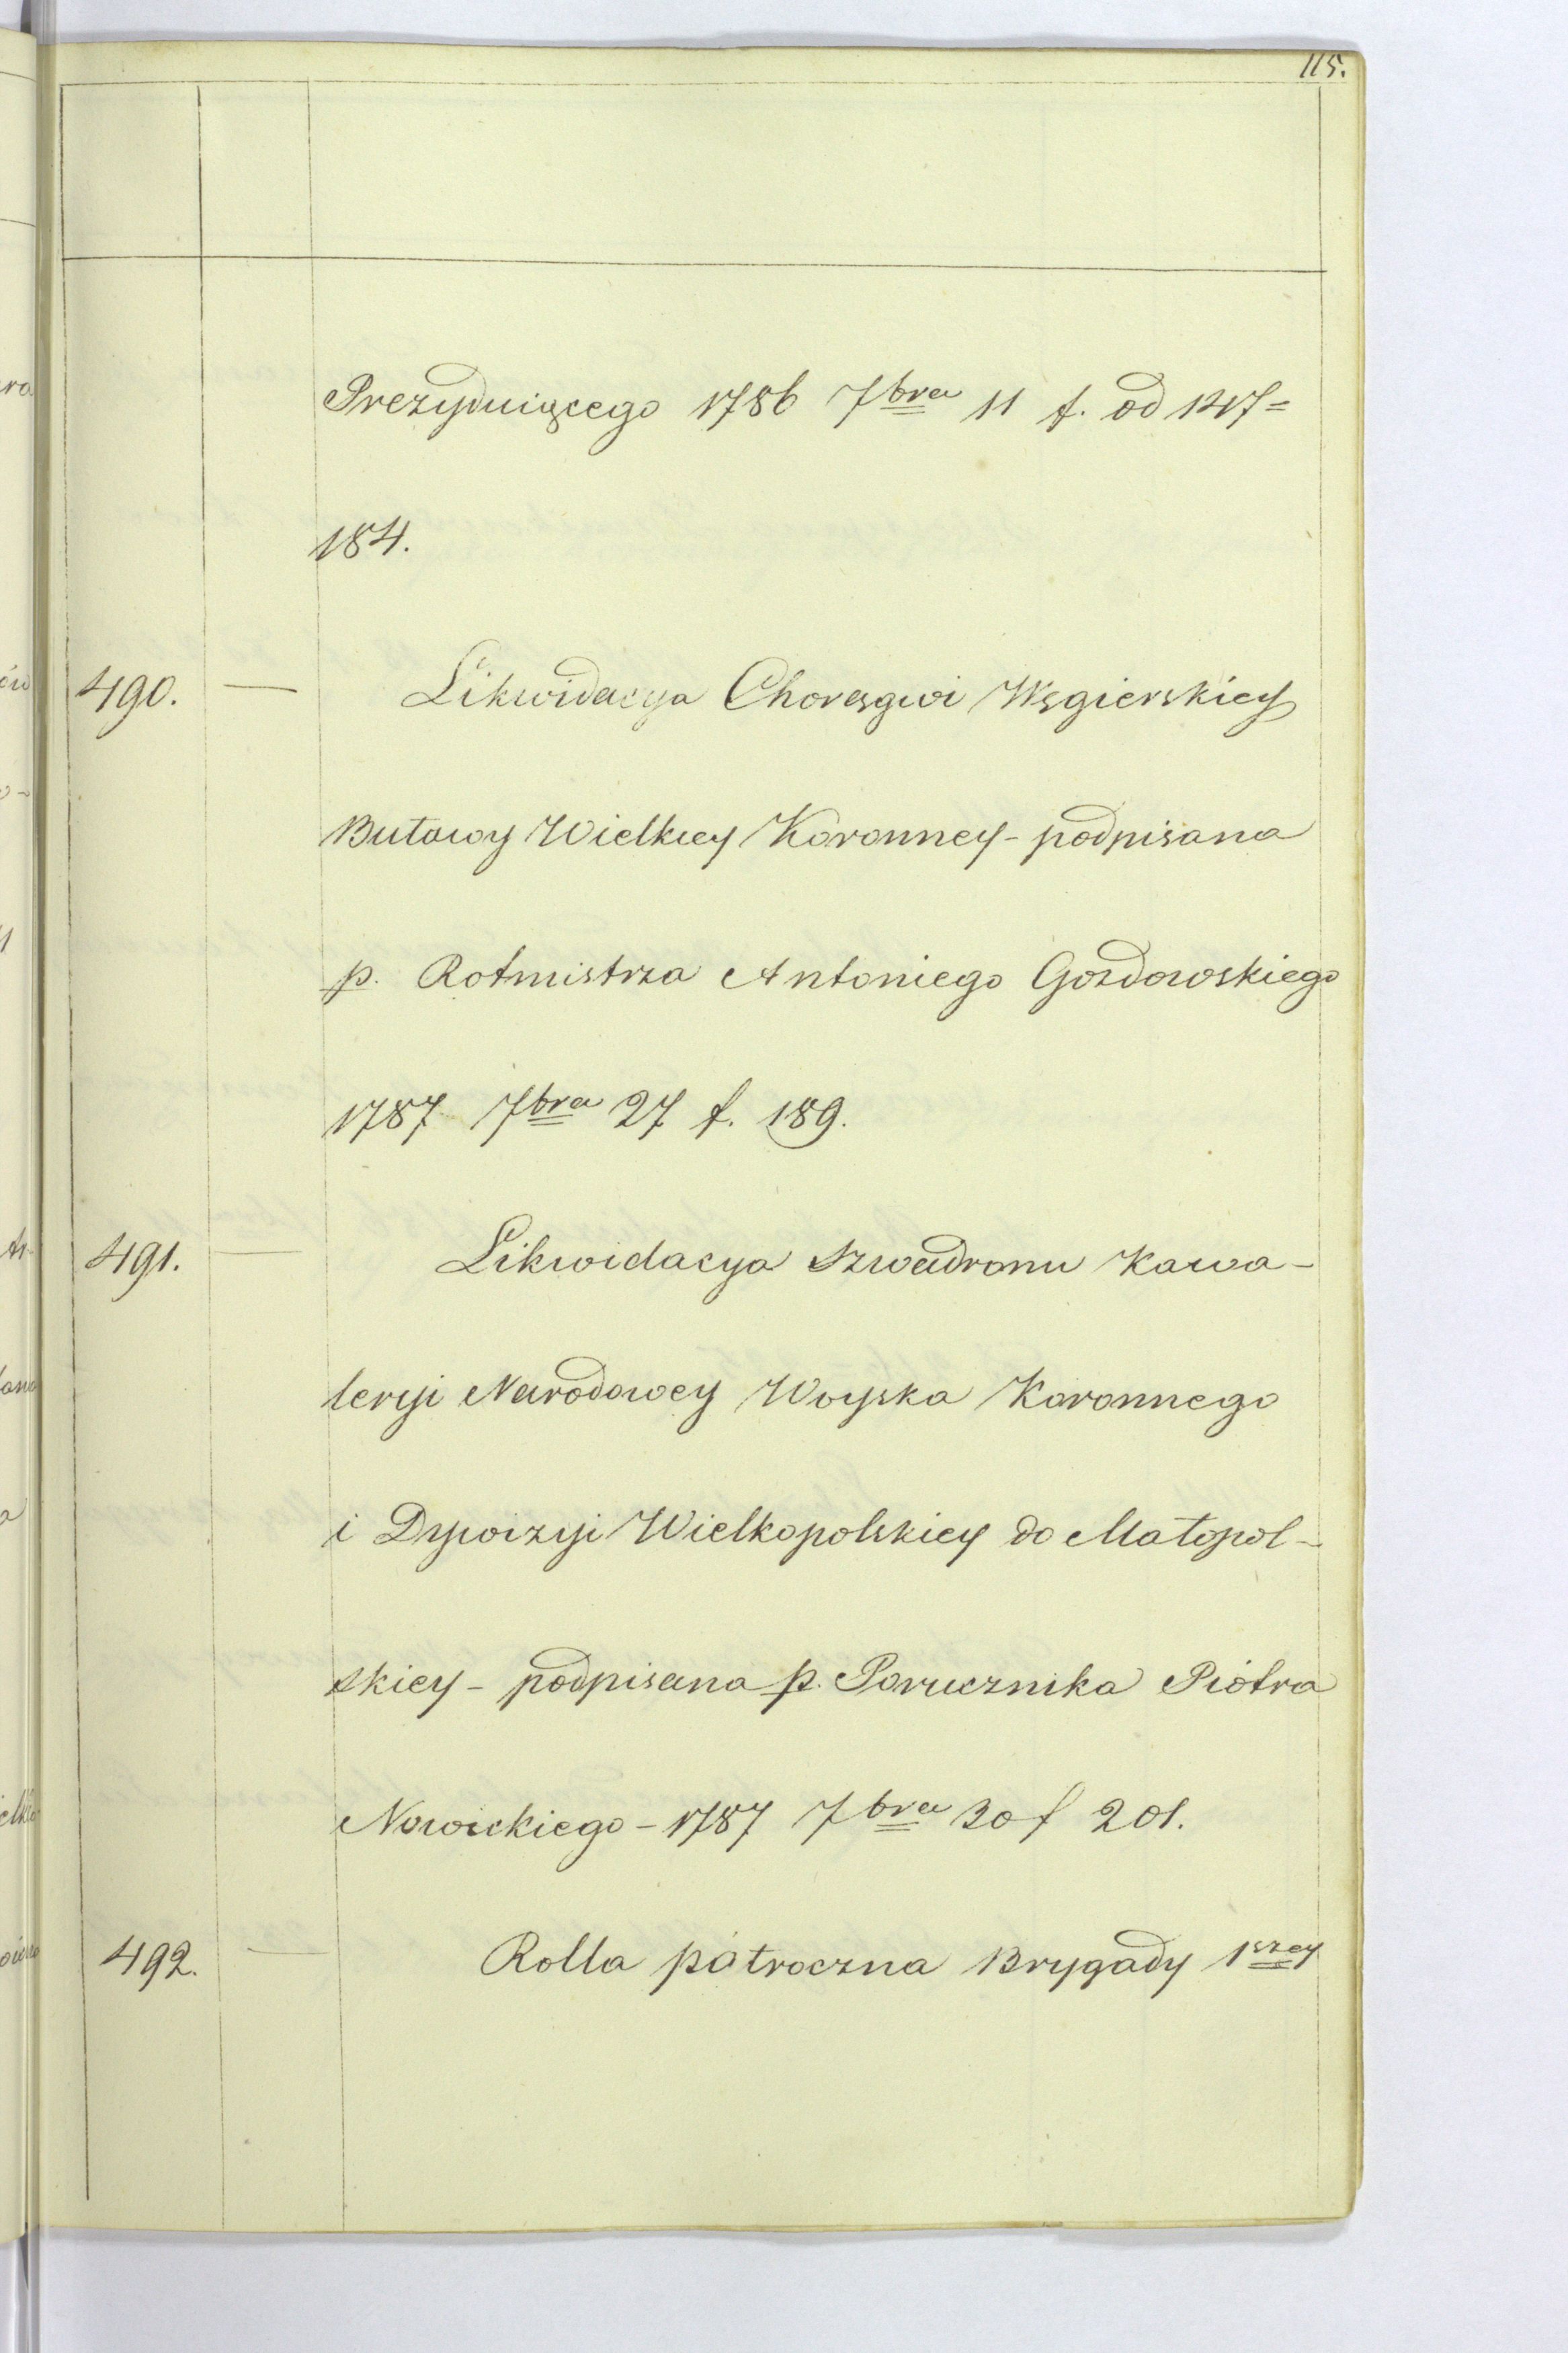 115.
Prezyduiącego 1786 7bra 11 f. od 147=
184.
490. — Likwidacya Chorągwi Węgierskiey
Buławy Wielkiey Koronney - podpisana
p. Rotmistrza Antoniego Gozdowskiego
1787 7bra 27 f. 189.
491. — Likwidacya Szwadronu Kawa-
leryi Narodowey Woyska Koronnego
i Dywizyi Wielkopolskiey do Małopol-
skiey - podpisana p. Porucznika Piotra
Nowickiego - 1787 7bra 30 f 201.
492. — Rolla półroczna Brygady 1szey